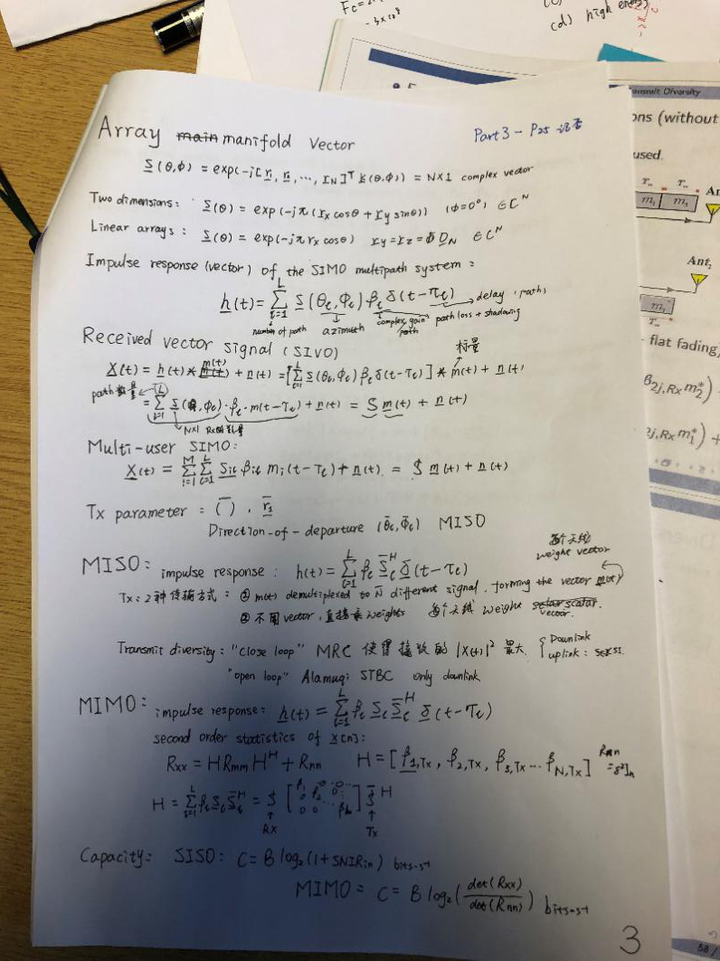 Fc=
(d) high
Array manifold Vector
Part3 - P25
S(θ,ϕ) = exp(-j[r₁, r₂, ..., r_N]ᵀ k(θ,ϕ)) = N×1 complex vector
Two dimensions: S(θ) = exp(-jπ(r_x cosθ + r_y sinθ)) (ϕ=0°) ∈ Cᴺ
Linear arrays: S(θ) = exp(-jπ r_x cosθ) r_y = r_z = 0_N ∈ Cᴺ
Impulse response (vector) of the SIMO multipath system:
h(t) = Σ_{l=1}^{L} S(θ_l, ϕ_l) β_l δ(t-τ_l) → delay, path
number of path azimuth complex gain path loss + shadowing
Received vector signal (SIVO)
标量
X(t) = h(t) * m(t) + n(t) = [Σ_{l=1}^{L} S(θ_l, ϕ_l) β_l δ(t-τ_l)] * m(t) + n(t)
path数量
= Σ_{l=1}^{L} S(θ_l, ϕ_l) · β_l · m(t-τ_l) + n(t) = S m(t) + n(t)
N×1 Rx
Multi-user SIMO:
X(t) = Σ_{i=1}^{M} Σ_{l=1}^{L} S_il β_il m_i(t-τ_l) + n(t) = S m(t) + n(t)
Tx parameter = (¯), r̄₁
Direction-of-departure (θ̄_l, ϕ̄_l) MISO
每个天线
weight vector
MISO: impulse response: h(t) = Σ_{l=1}^{L} β_l S̄_lᴴ δ(t-τ_l)
Tx: 2种传输方式: ① m(t) demultiplexed to N̄ different signal, forming the vector m(t)
② 不用vector, 直接乘weights 每个天线 weight scalar vector.
Transmit diversity: "close loop" MRC 使得接收的 |X(t)|² 最大 { Downlink
uplink:
"open loop" Alamuqi STBC only downlink
MIMO: impulse response: h(t) = Σ_{l=1}^{L} β_l S_l S̄_lᴴ δ(t-τ_l)
second order statistics of X[n]:
Rxx = H Rmm Hᴴ + Rnn H = [β_{1,Tx}, β_{2,Tx}, β_{3,Tx} ... β_{N,Tx}] Rnn
H = Σ_{l=1}^{L} β_l S_l S̄_lᴴ = S [β₁ 0 0 ... 0 β₂ 0 ... 0 0 β_L] S̄ᴴ
↑ ↑
Rx Tx
Capacity: SISO: C = B log₂(1+SNIRin) bits-st
MIMO = C = B log₂(det(Rxx)/det(Rnn)) bits-st
3
ansmit Diversity
ons (without
used.
m₁ m₁
Ant₂
flat fading
β_{2j,Rx} m₂*) +
2j,Rx m₁*) +